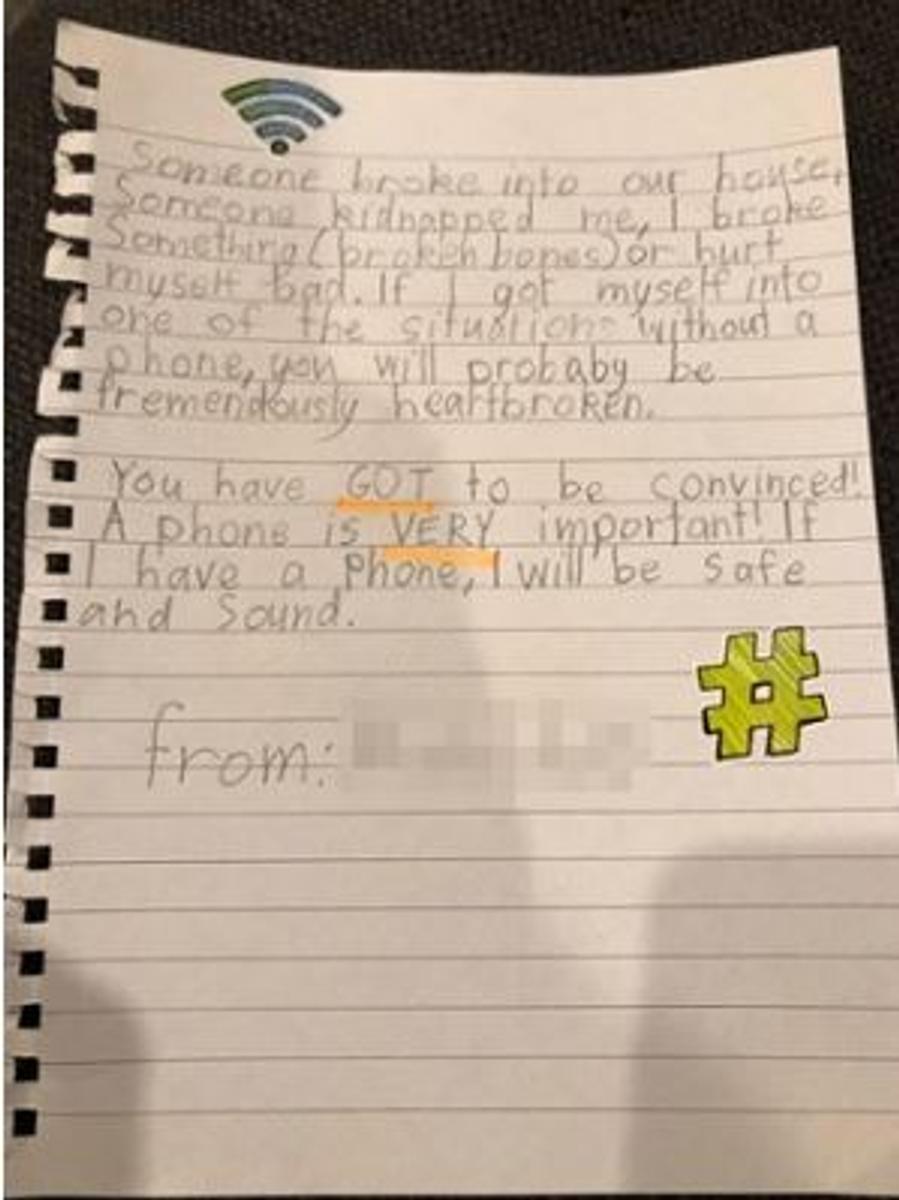 Someone broke into our house,
Someone kidnapped me, I broke
Something (broken bones) or hurt
myself bad. If I got myself into
one of the situations without a
phone, you will probaby be
tremendously heartbroken.
You have GOT to be convinced!
A phone is VERY important! If
I have a Phone, I will be safe
and Sound.
from:
#